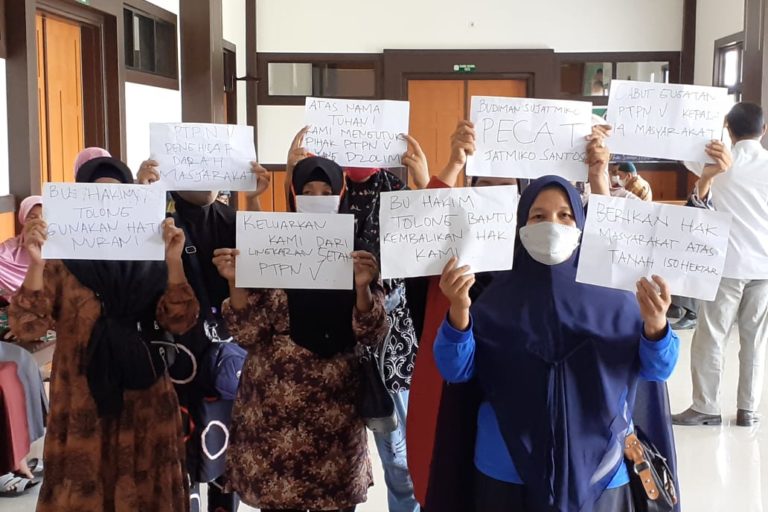 PTPN V
PENGHISAP
DARAH
MASYARAKAT
ATAS NAMA
TUHAN!
KAMI MENGUTUK
PIHAK PTPN V
DZOLIM
BUDIMAN
PECAT
JATMIKO SANTOS
CABUT GUGATAN
PTPN V KEPADA
14 MASYARAKAT
TOLONG
GUNAKAN HATI
NURANI
KELUARKAN
KAMI DARI
LINGKARAN SETAN
PTPN V...
BU HAKIM
TOLONG BANTU
KEMBALIKAN HAK
KAMI
BERIKAN HAK
MASYARAKAT ATAS
TANAH 150 HEKTAR